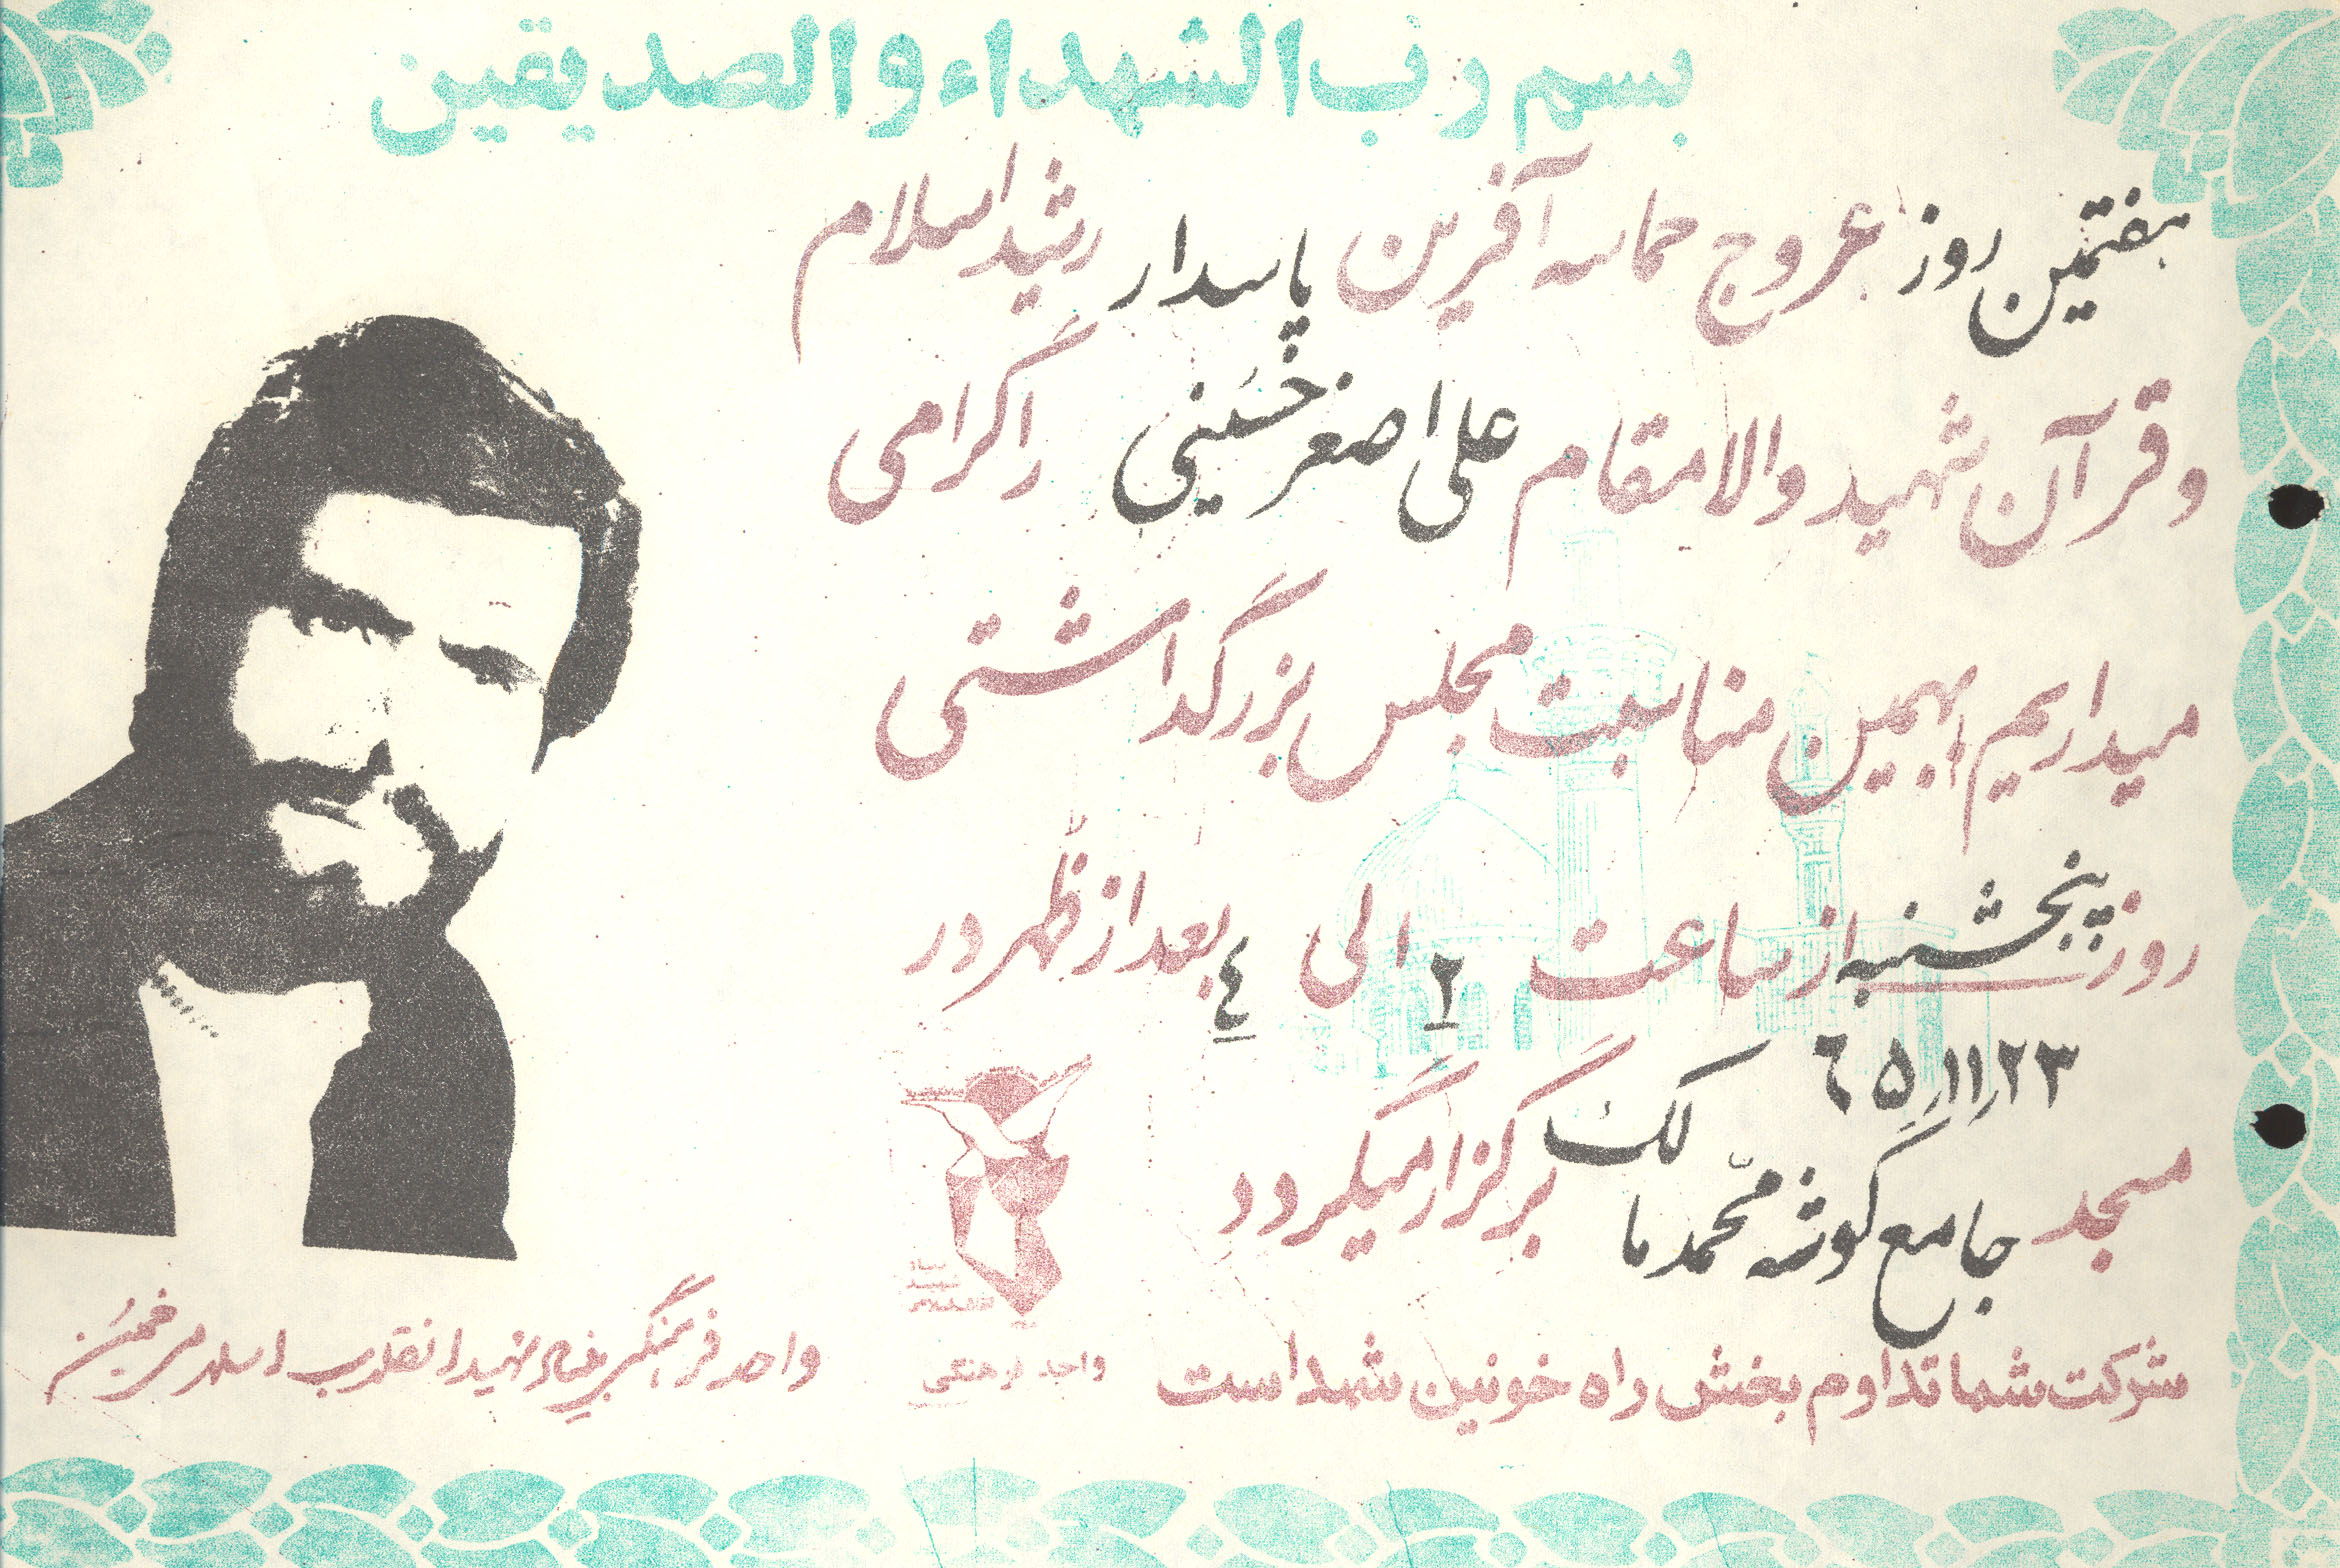 بسم رب الشهداء والصدیقین
هفتمین روز عروج حماسه آفرین پاسدار رشید اسلام
و قرآن شهید والامقام علی اصغر حسینی را گرامی
میداریم بهمین مناسبت مجلس بزرگداشتی
روز پنجشنبه از ساعت ۲ الی ٤ بعد از ظهر در
۲۳ر۱۱ر٦۵
مسجد جامع گوشه محمد مالک برگزار میگردد
شرکت شما تداوم بخش راه خونین شهدا است
واحد فرهنگی
واحد فرهنگی بنیاد شهید انقلاب اسلامی خمین